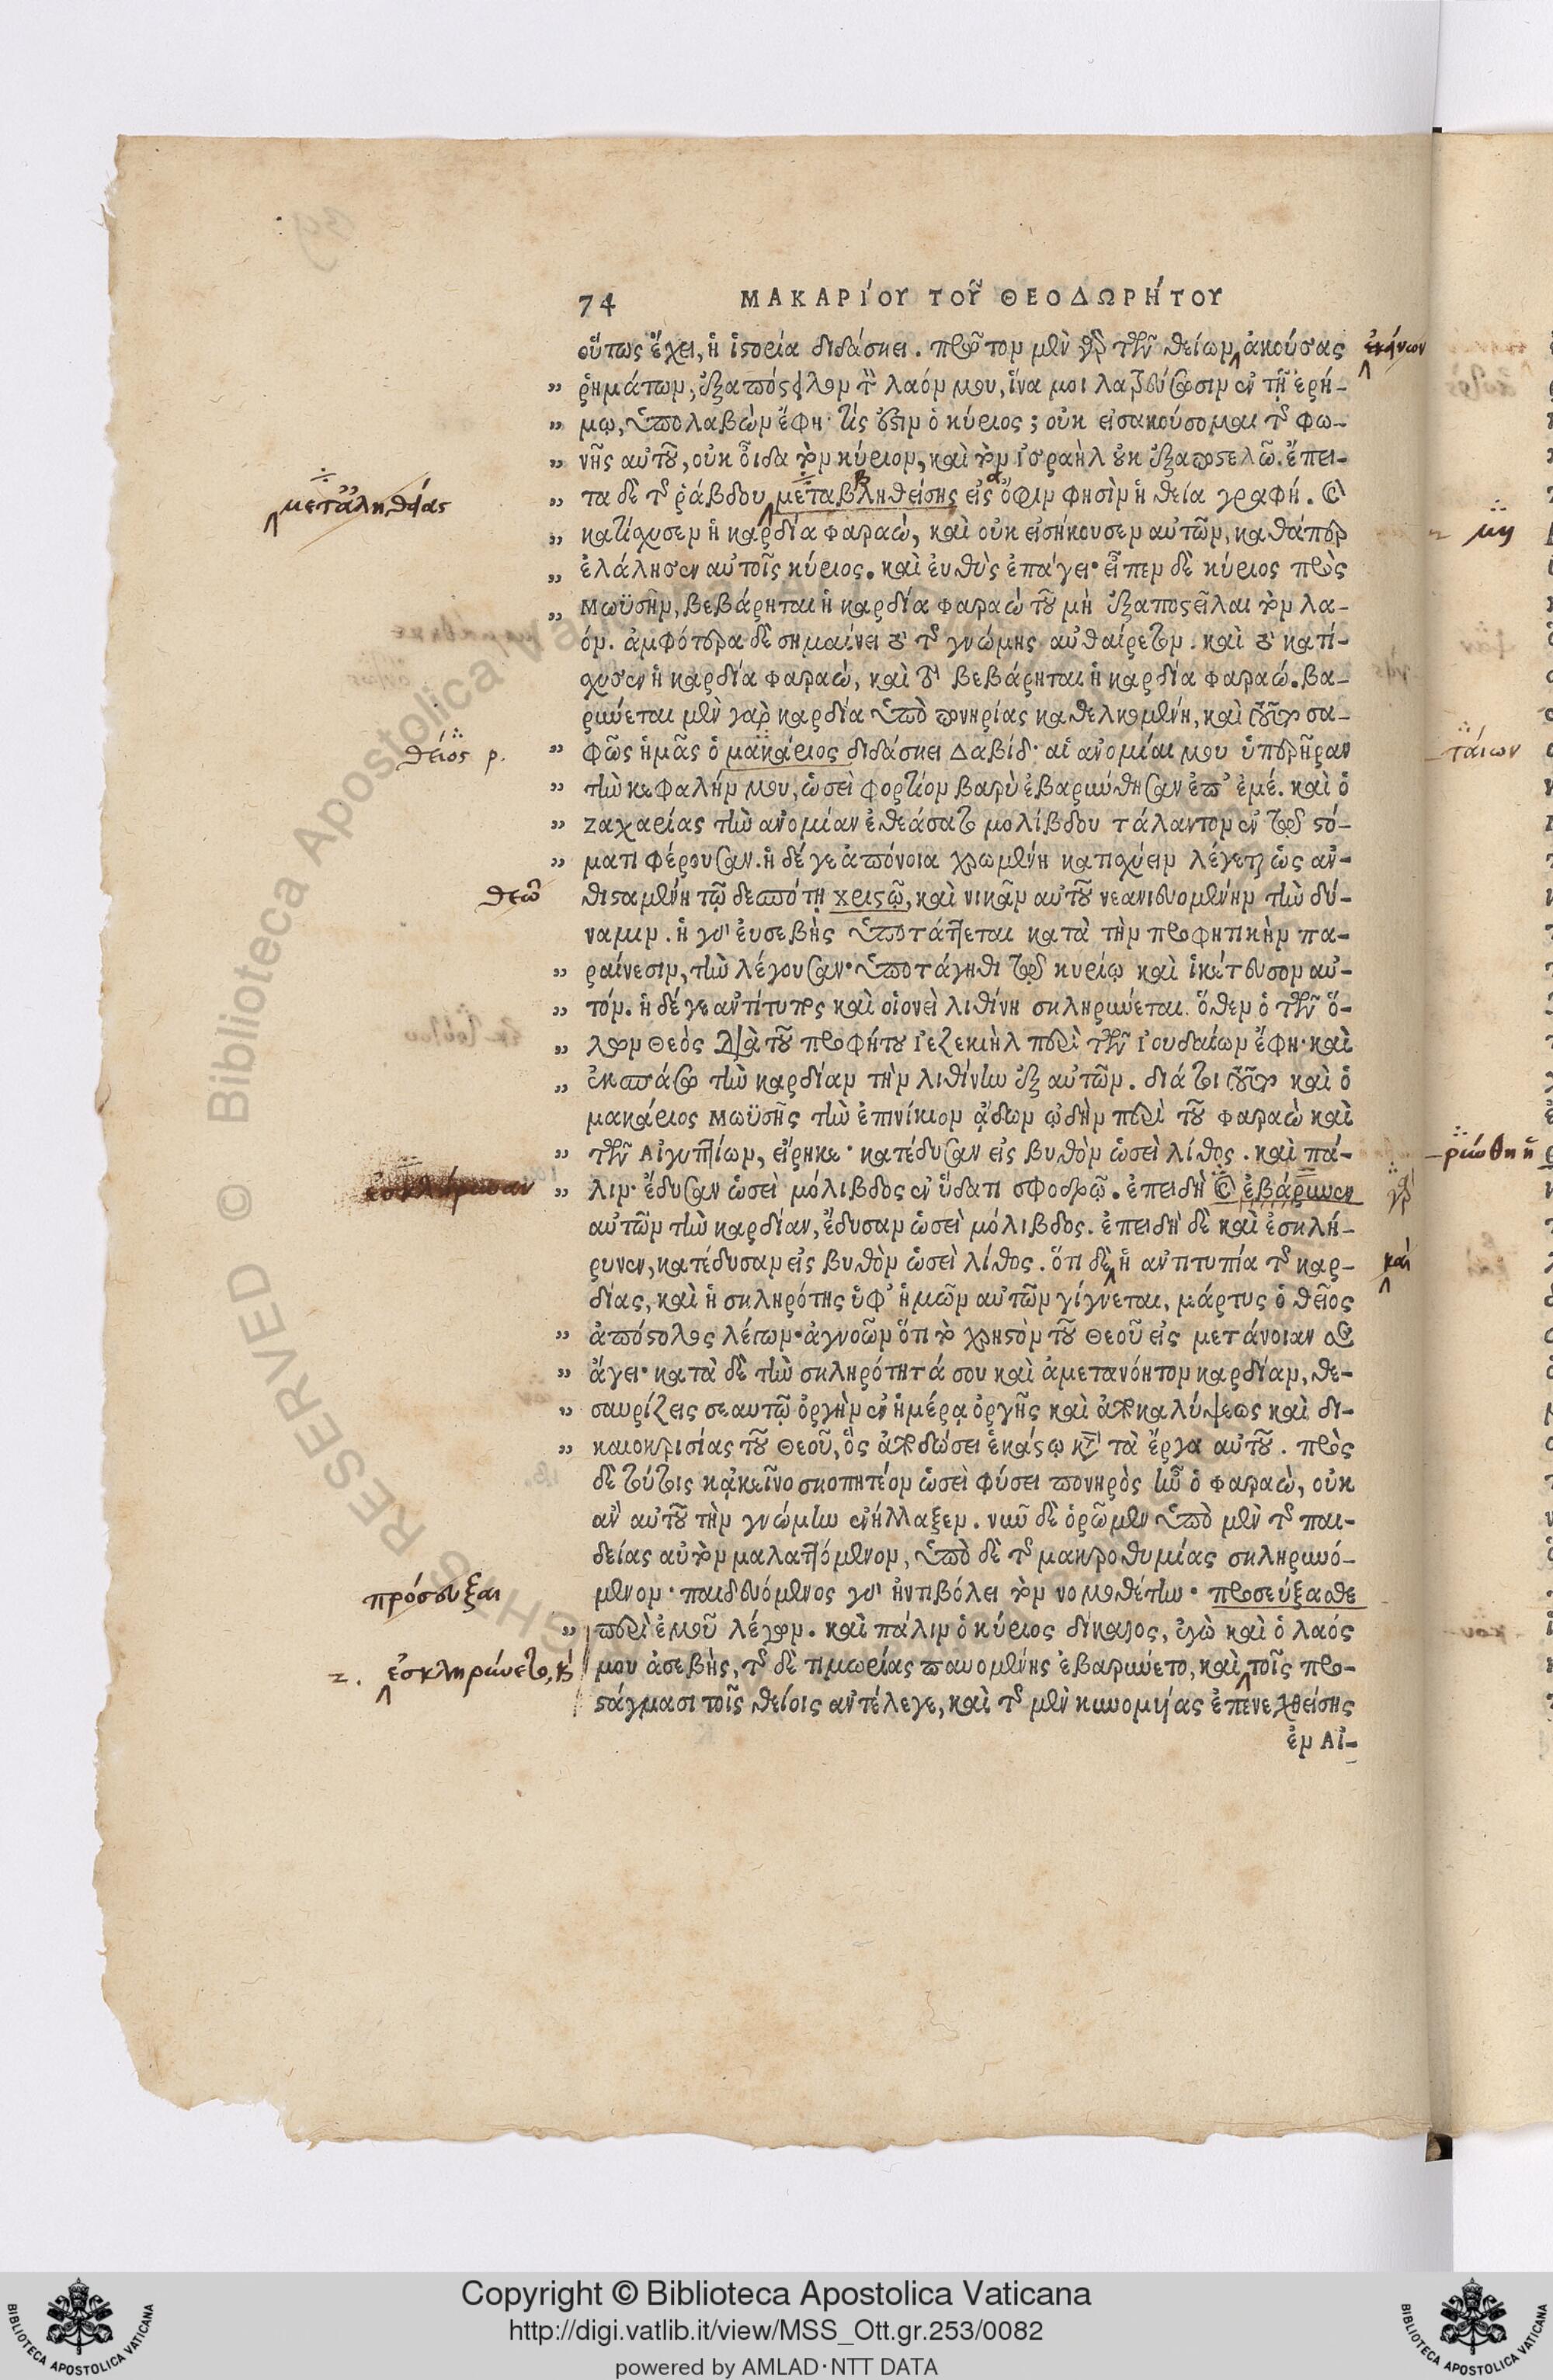 74 ΜΑΚΑΡΊΟΥ ΤΟΥ͂ ΘΕΟΔΩΡΉΤΟΥ
οὕτως ἔχει, ἡ ἱστορία διδάσκει. πρῶτον μὲν γὰρ τῶν θείων ἀκούσας ἐκείνων
„ ῥημάτων, ἐξαπόστειλον τὸν λαόν μου, ἵνα μοι λατρεύσωσιν ἐν τῇ ἐρή-
„ μῳ, ὑπολαβὼν ἔφη· τίς ἐστιν ὁ κύριος; οὐκ εἰσακούσομαι τῆς φω-
„ νῆς αὐτοῦ, οὐκ οἶδα τὸν κύριον, καὶ τὸν ἰσραὴλ οὐκ ἐξαποστελῶ. ἔπει-
μεταληθείας
„ τα δὲ τῆς ῥάβδου μεταβληθείσης εἰς ὄφιν φησὶν ἡ θεία γραφή. καὶ
„ κατίσχυσεν ἡ καρδία φαραὼ, καὶ οὐκ εἰσήκουσεν αὐτῶν, καθάπερ
„ ἐλάλησεν αὐτοῖς κύριος. καὶ ἐυθὺς ἐπάγει· εἶπεν δὲ κύριος πρὸς
„ Μωϋσῆν, βεβάρηται ἡ καρδία φαραὼ τοῦ μὴ ἐξαποστεῖλαι τὸν λα-
όν. ἀμφότερα δὲ σημαίνει τὸ τῆς γνώμης αὐθαίρετον. καὶ τὸ κατί-
σχυσεν ἡ καρδία φαραὼ, καὶ τὸ βεβάρηται ἡ καρδία φαραώ. βα-
ρύνεται μὲν γὰρ καρδία ὑπὸ πονηρίας καθελκομένη, καὶ τοῦτο σα-
θεῖος ρ.
„ φῶς ἡμᾶς ὁ μακάριος διδάσκει Δαβίδ· αἱ ἀνομίαι μου ὑπερῆραν
„ τὴν κεφαλήν μου, ὡσεὶ φορτίον βαρὺ ἐβαρύνθησαν ἐπ' ἐμέ. καὶ ὁ
„ Ζαχαρίας τὴν ἀνομίαν ἐθεάσατο μολίβδου τάλαντον ἐν τῷ στό-
„ ματι φέρουσαν. ἡ δέ γε ἀπόνοια χρωμένη κατισχύειν λέγεται ὡς ἀν-
θεῶ
θισταμένη τῷ δεσπότῃ χριστῷ, καὶ νικᾶν αὐτοῦ νεανιευομένην τὴν δύ-
ναμιν. ἡ γὰρ ἐυσεβὴς ὑποτάττεται κατὰ τὴν προφητικὴν πα-
„ ραίνεσιν, τὴν λέγουσαν· ὑποτάγηθι τῷ κυρίῳ καὶ ἱκέτευσον αὐ-
„ τόν. ἡ δέ γε ἀντίτυπος καὶ οἱονεὶ λιθίνη σκληρύνεται. ὅθεν ὁ τῶν ὅ-
„ λων Θεὸς διὰ τοῦ προφήτου Ἰεζεκιὴλ περὶ τῶν Ἰουδαίων ἔφη· καὶ
„ ἐκσπάσω τὴν καρδίαν τὴν λιθίνην ἐξ αὐτῶν. διά τοι τοῦτο καὶ ὁ
μακάριος Μωϋσῆς τὴν ἐπινίκιον ᾄδων ᾠδὴν περὶ τοῦ φαραὼ καὶ
„ τῶν Αἰγυπτίων, εἴρηκε· κατέδυσαν εἰς βυθὸν ὡσεὶ λίθος. καὶ πά-
„ λιν· ἔδυσαν ὡσεὶ μόλιβδος ἐν ὕδατι σφοδρῷ. ἐπειδὴ καὶ ἐβάρυνεν γὰρ
αὐτῶν τὴν καρδίαν, ἔδυσαν ὡσεὶ μόλιβδος. ἐπειδὴ δὲ καὶ ἐσκλή-
ρυνεν, κατέδυσαν εἰς βυθὸν ὡσεὶ λίθος. ὅτι δὲ ἡ ἀντιτυπία τῆς καρ- καὶ
δίας, καὶ ἡ σκληρότης ὑφ' ἡμῶν αὐτῶν γίγνεται, μάρτυς ὁ θεῖος
„ ἀπόστολος λέγων· ἀγνοῶν ὅτι τὸ χρηστὸν τοῦ Θεοῦ εἰς μετάνοιαν σε
„ ἄγει· κατὰ δὲ τὴν σκληρότητά σου καὶ ἀμετανόητον καρδίαν, θη-
„ σαυρίζεις σεαυτῷ ὀργὴν ἐν ἡμέρᾳ ὀργῆς καὶ ἀποκαλύψεως καὶ δι-
„ καιοκρισίας τοῦ Θεοῦ, ὃς ἀποδώσει ἑκάστῳ κατὰ τὰ ἔργα αὐτοῦ. πρὸς
δὲ τούτοις κᾀκεῖνο σκοπητέον ὡσεὶ φύσει πονηρὸς ἦν ὁ φαραὼ, οὐκ
ἂν αὐτοῦ τὴν γνώμην ἐνήλλαξεν. νῦν δὲ ὁρῶμεν ὑπὸ μὲν τῆς παι-
δείας αὐτὸν μαλαττόμενον, ὑπὸ δὲ τῆς μακροθυμίας σκληρυνό-
πρόσευξαι
μενον· παιδευόμενος γὰρ ἠντιβόλει τὸν νομοθέτην· προσεύξασθε
„ περὶ ἐμοῦ λέγων. καὶ πάλιν ὁ κύριος δίκαιος, ἐγὼ καὶ ὁ λαός
ἐσκληρύνετο, κὶ
μου ἀσεβὴς, τῆς δὲ τιμωρίας παυομένης ἐβαρύνετο, καὶ τοῖς προ-
στάγμασι τοῖς θείοις ἀντέλεγε, καὶ τῆς μὲν κυνομυίας ἐπενεχθείσης
ἐν Αἰ-
μη
-ταίων
-ρύνθη ἡ
© Biblioteca Apostolica Vaticana
RIGHTS RESERVED
Copyright © Biblioteca Apostolica Vaticana
http://digi.vatlib.it/view/MSS_Ott.gr.253/0082
powered by AMLAD·NTT DATA
BIBLIOTECA APOSTOLICA VATICANA
BIBLIOTECA APOSTOLICA VATICANA